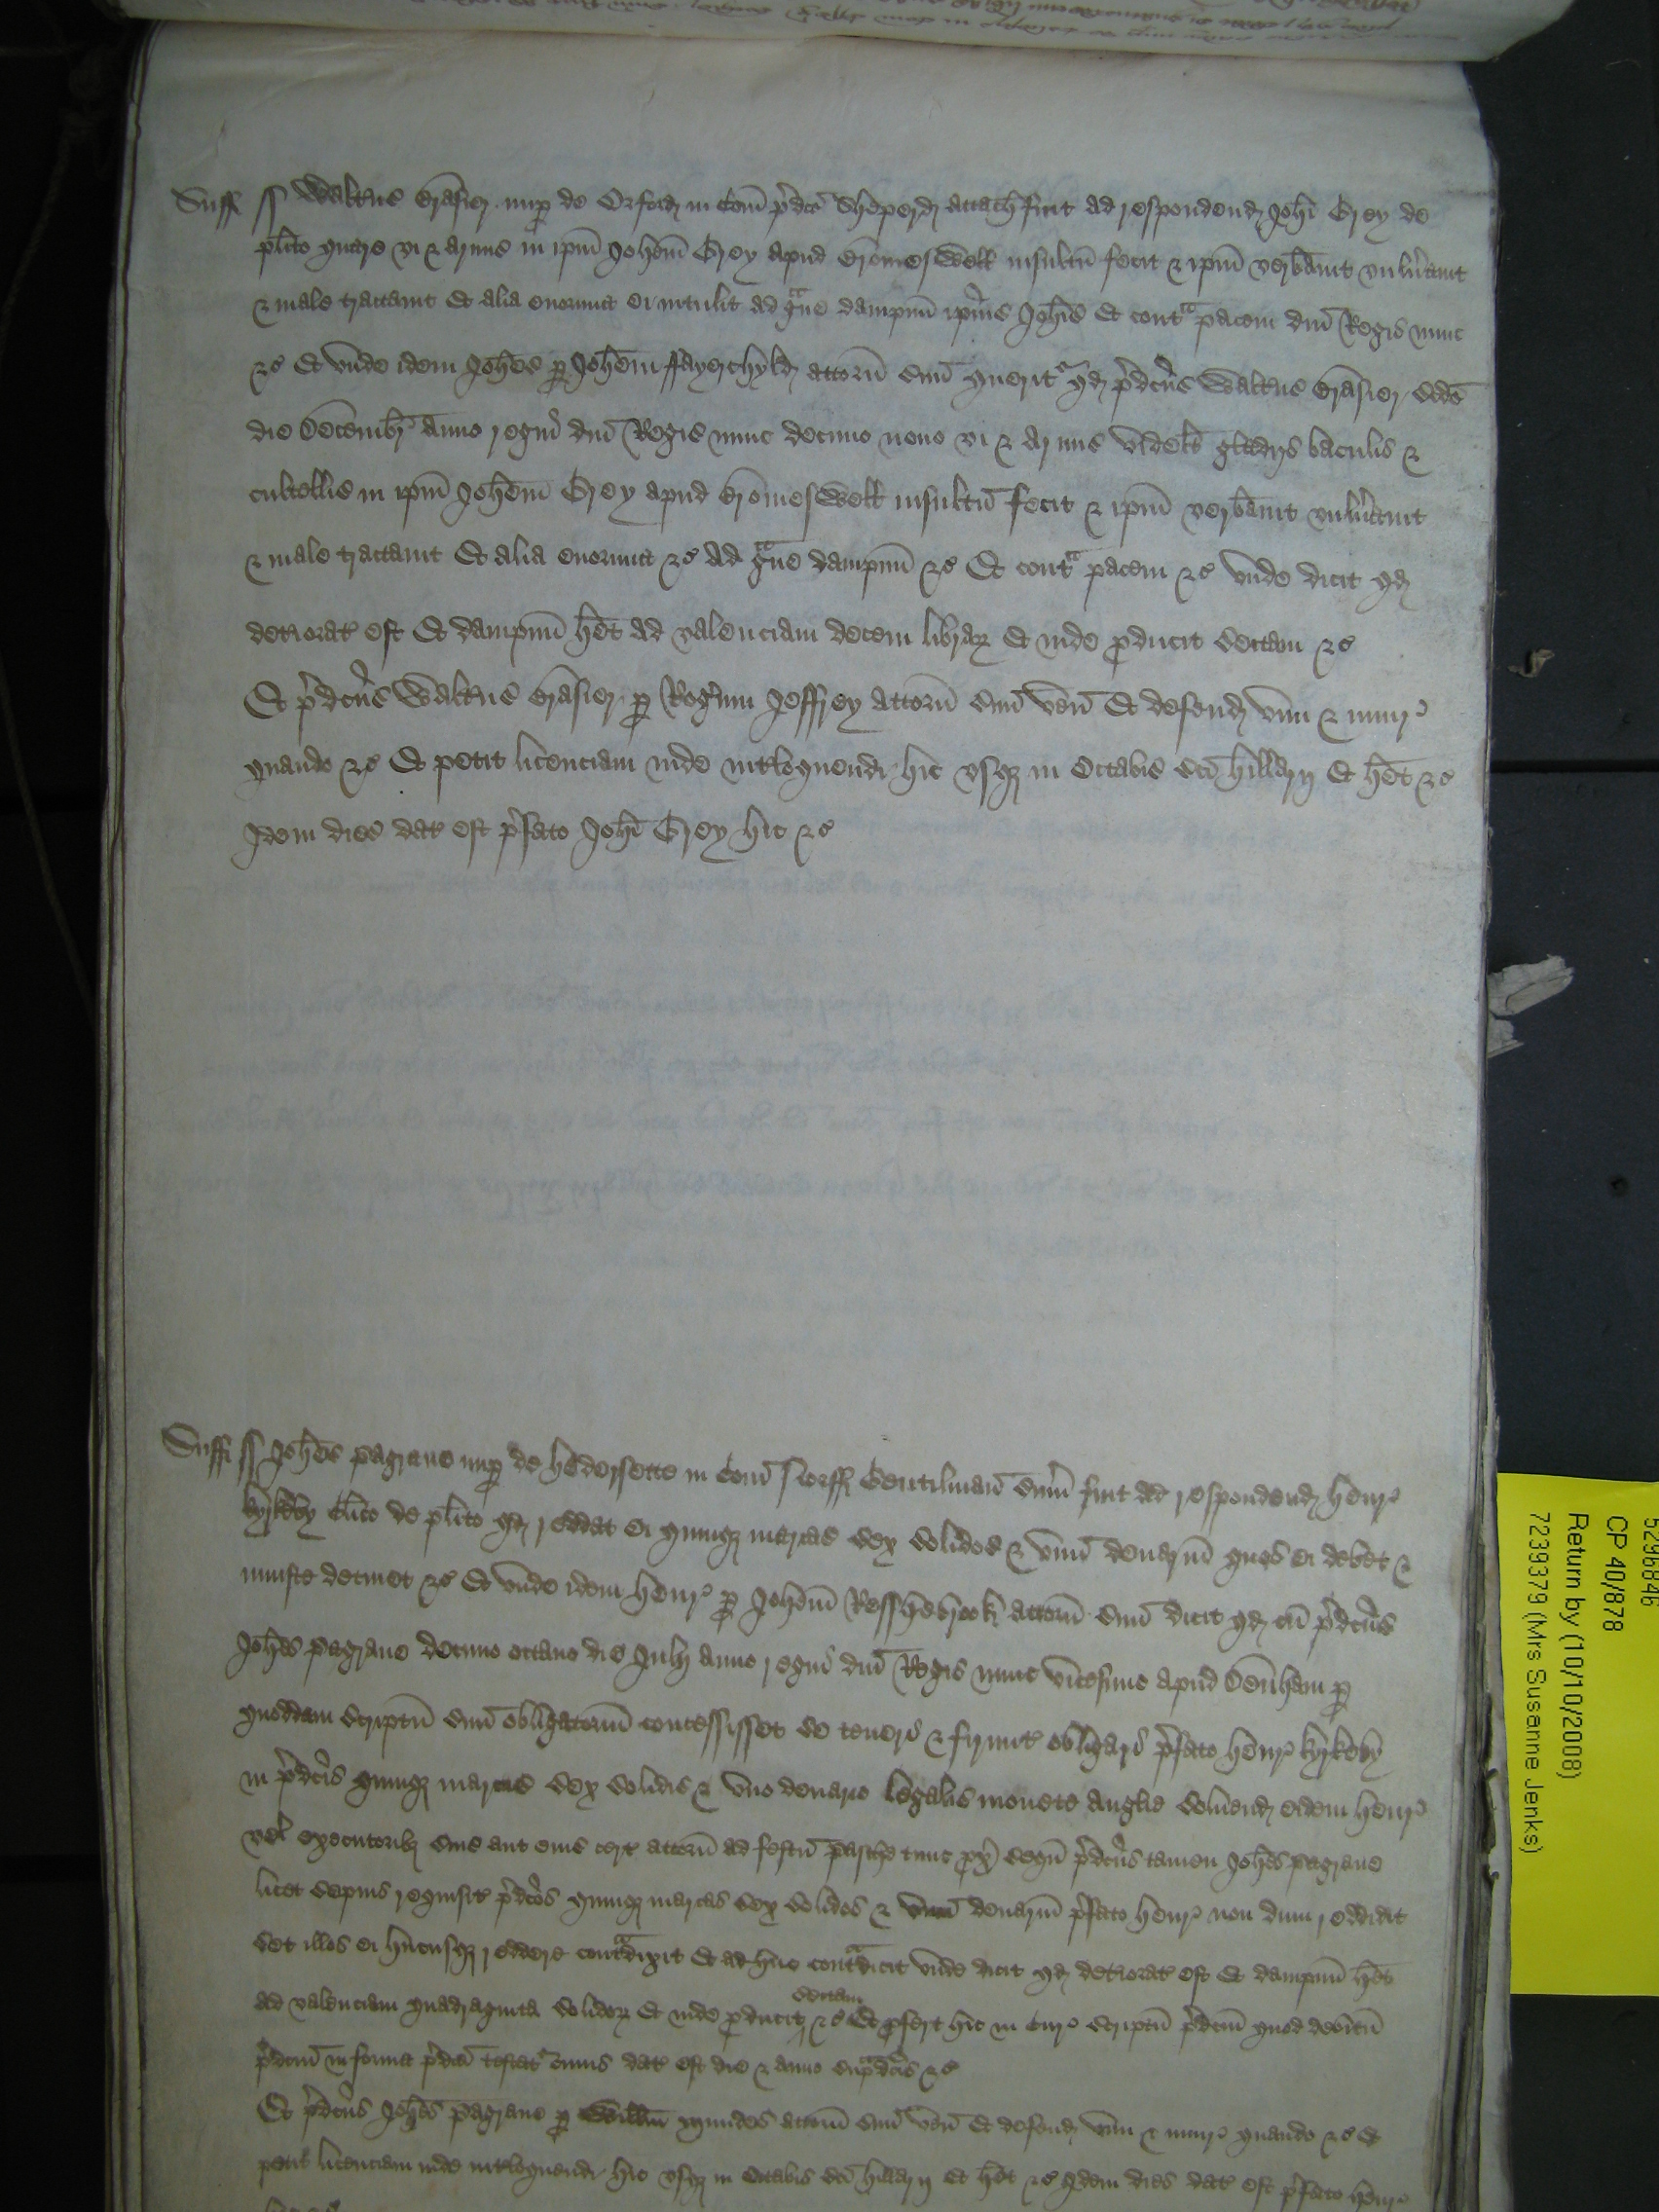 Suff ss Waltus Brasier nup de Orford in Com pdco Sheperd attach fuit ad respondend Johi Grey de
plito quare vi & armis in ipm Johem Grey apud Bromeswell insultu fecit & ipm verbavit vulnavit
& male tractavit Et alia enormia ei intulit ad gve dampnu ipius Johis Et contra pacem dni Regis nunc
&c Et unde idem Johes p Johem ffayerchyld attorn suu querit qd pdcus Waltus Brasier scdo
die Decembr Anno regni dni Regis nunc decimo nono vi & armis videlt gladiis baculis &
cultellis in ipm Johem Grey apud Bromeswell insultu fecit & ipm verbavit vulnavit
& male tractavit Et alia enormia &c Ad gve dampnu &c Et contra pacem &c unde dicit qd
deteriorat est Et dampnu het ad valenciam decem librar Et inde producit sectam &c
Et pdcus Waltus Brasier p Rogum Jeffrey attorn suu ven Et defend vim & injur
quando &c Et petit licenciam inde intloquendi hic usq in Octabis sci Hillarij Et het &c
Idem dies dat est pfato Johi Grey hic &c
Suff ss Johes Pagrave nup de Hedersette in Com Norff Gentilman sum fuit ad respondend Henr
Kyrkeby Clico de plito qd reddat ei quinq marcas sex solidos & unu denariu quos ei debet &
iniuste detinet &c Et unde idem Henr p Johem attorn suu dicit qd cu pdcus
Johes Pagrave decimo octavo die Julij anno regni dni Regis nunc vicesimo apud Denham p
quoddam scriptu suu obligatoriu concessisset se teneri & firmit obligari pfato Henr Kyrkeby
in pdcis quinq marcis sex solidis & uno denario legalis monete Anglie solvend eidem Henr
vel executorib suis aut eius cert attorn ad festu Pasche tunc px sequ pdcus tamen Johes Pagrave
licet sepius requisit pdcos quinq marcas sex solidos & unu denariu pfato Henr non dum reddidit
set illos ei hucusq reddere contradixit Et adhuc contradicit unde dicit qd deteriorat est Et dampnu het
ad valenciam quadraginta solidor Et inde producit sectam &c Et profert hic in Cur scriptu pdcm quod debitu
pdcm in forma pdca testat cuius dat est die & anno supradcis &c
Et pdcus Johes Pagrave p attorn suu ven Et defend vim & injur quando &c Et
petit licenciam inde intloquendi hic usq in Octabis sci Hillarij Et het &c Idem dies dat est pfato Henr
hic &c
5296846
CP 40/878
Return by (10/10/2008)
7239379 (Mrs Susanne Jenks)